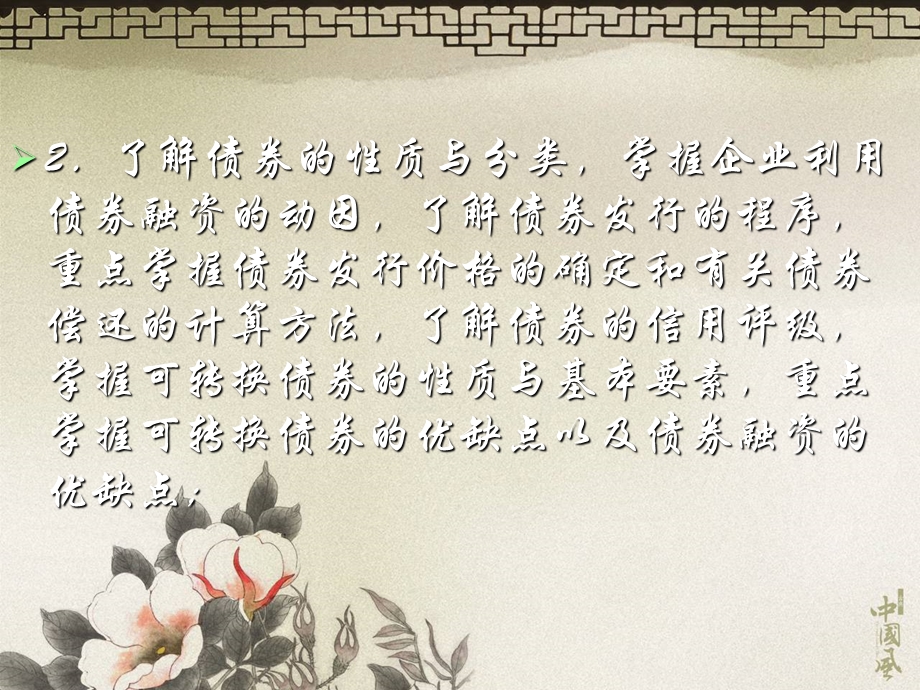 2．了解债券的性质与分类，掌握企业利用
债券融资的动因，了解债券发行的程序，
重点掌握债券发行价格的确定和有关债券
偿还的计算方法，了解债券的信用评级，
掌握可转换债券的性质与基本要素，重点
掌握可转换债券的优缺点以及债券融资的
优缺点；
中國风